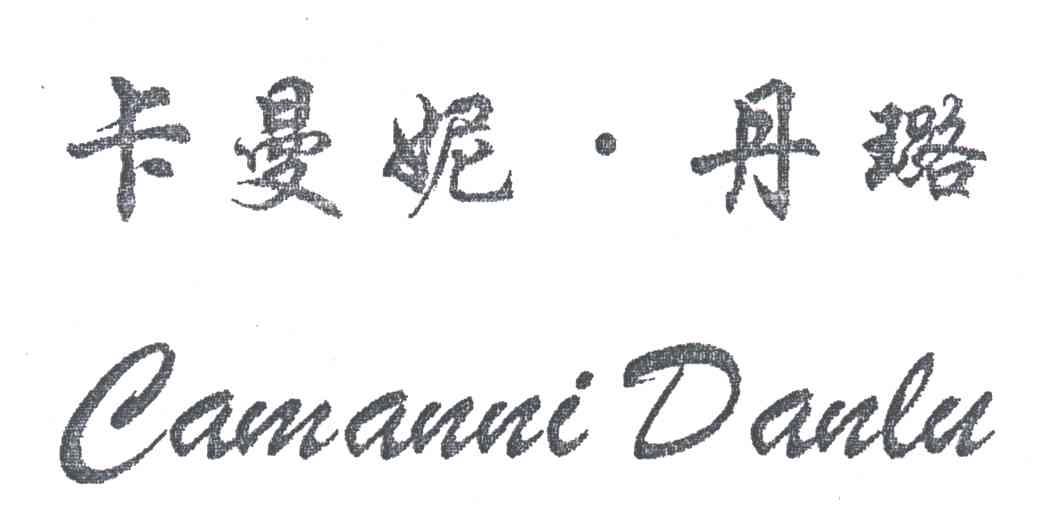 卡曼妮·丹璐
Camanni Danlu